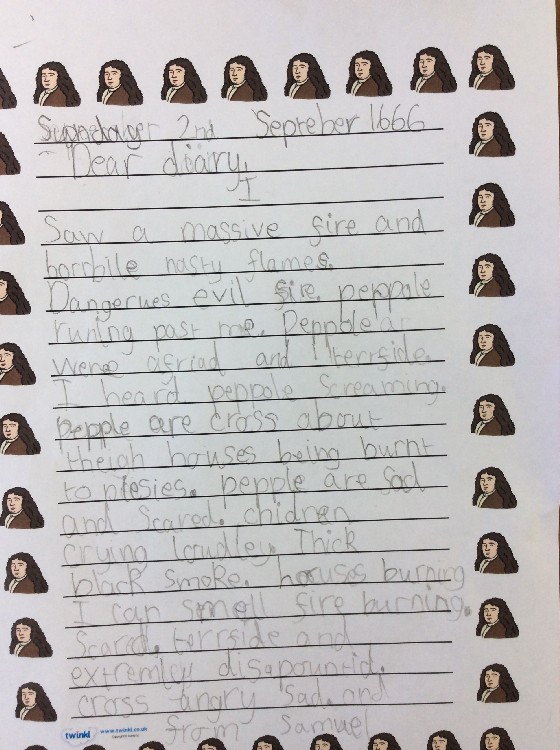 2nd Sepreber 1666
Dear diary,
I
Saw a massive fire and
horrbile nasty flames.
Dangerues evil fire. peppole
runing past me. Peppole ar
were afriad and terrfside.
I heard peppole screaming.
pepple are cross about
theigh houses being burnt
to piesies. pepple are sad
and scared. chidren
crying loudley. Thick
black smoke. houses burning
I can smell fire burning.
Scared. terrfside and
extremley disapountid.
cross angry sad. and
from Samuel
twinkl www.twinkl.co.uk